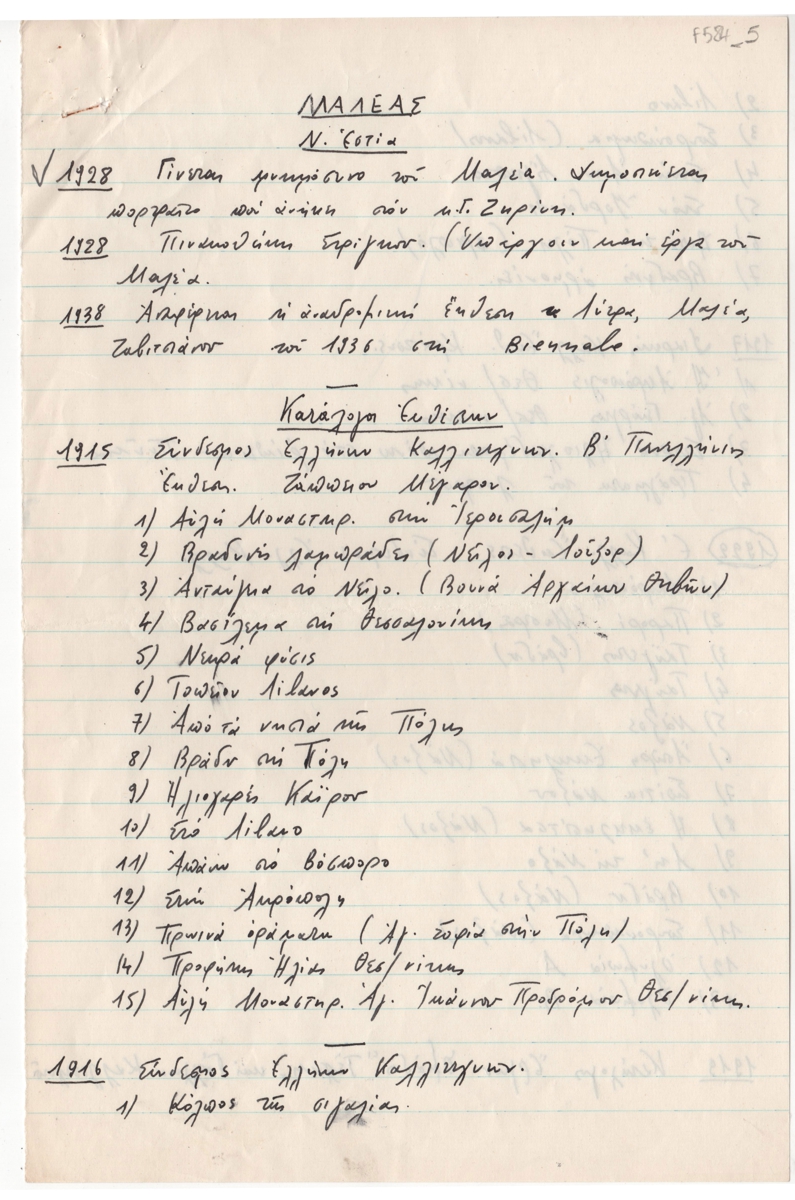 F584_5
ΜΑΛΕΑΣ
Ν. Ἑστία
✓ 1928 Γίνεται μνημόσυνο τοῦ Μαλέα. Δημοσιεύεται
πορτραῖτο ποὺ ἀνήκει στόν κ. Γ. Ζηρίνη.
1928 Πινακοθήκη Στρίγκου. (Ὑπάρχουν καί ἔργα τοῦ
Μαλέα.
1938 ἡ ἀναδρομική Ἔκθεση Λύτρα, Μαλέα,
Ζαβιτσιάνου τοῦ 1936 στή Biennale.
Κατάλογοι Ἐκθέσεων
1915 Σύνδεσμος Ἑλλήνων Καλλιτεχνῶν. Β' Πανελλήνιος
Ἔκθεση. Ζάππειον Μέγαρον.
1) Αὐλή Μοναστηρ. στήν Ἱερουσαλήμ
2) Βραδυνές λαμπράδες (Νεῖλος - Λούξορ)
3) Ἀνταύγεια στό Νεῖλο. (Βουνά Ἀρχαίων Θηβῶν)
4) Βασίλεμα στή Θεσσαλονίκη
5) Νεκρά φύσις
6) Τοπεῖον Λίβανος
7) Ἀπό τά νησιά τῆς Πόλης
8) Βράδυ στή Πόλη
9) Ἡλιοχαρές Καΐρου
10) Στό Λίβανο
11) Ἀπάνω στό Βόσπορο
12) Στήν Ἀκρόπολη
13) Πρωινά ὁράματα (Ἁγ. Σοφία στήν Πόλη)
14) Προφήτης Ἠλίας Θεσ/νίκης
15) Αὐλή Μοναστηρ. Ἁγ. Ἰωάννου Προδρόμου Θεσ/νίκης.
1916 Σύνδεσμος Ἑλλήνων Καλλιτεχνῶν.
1) Κόλπος τῆς σιγαλιᾶς.